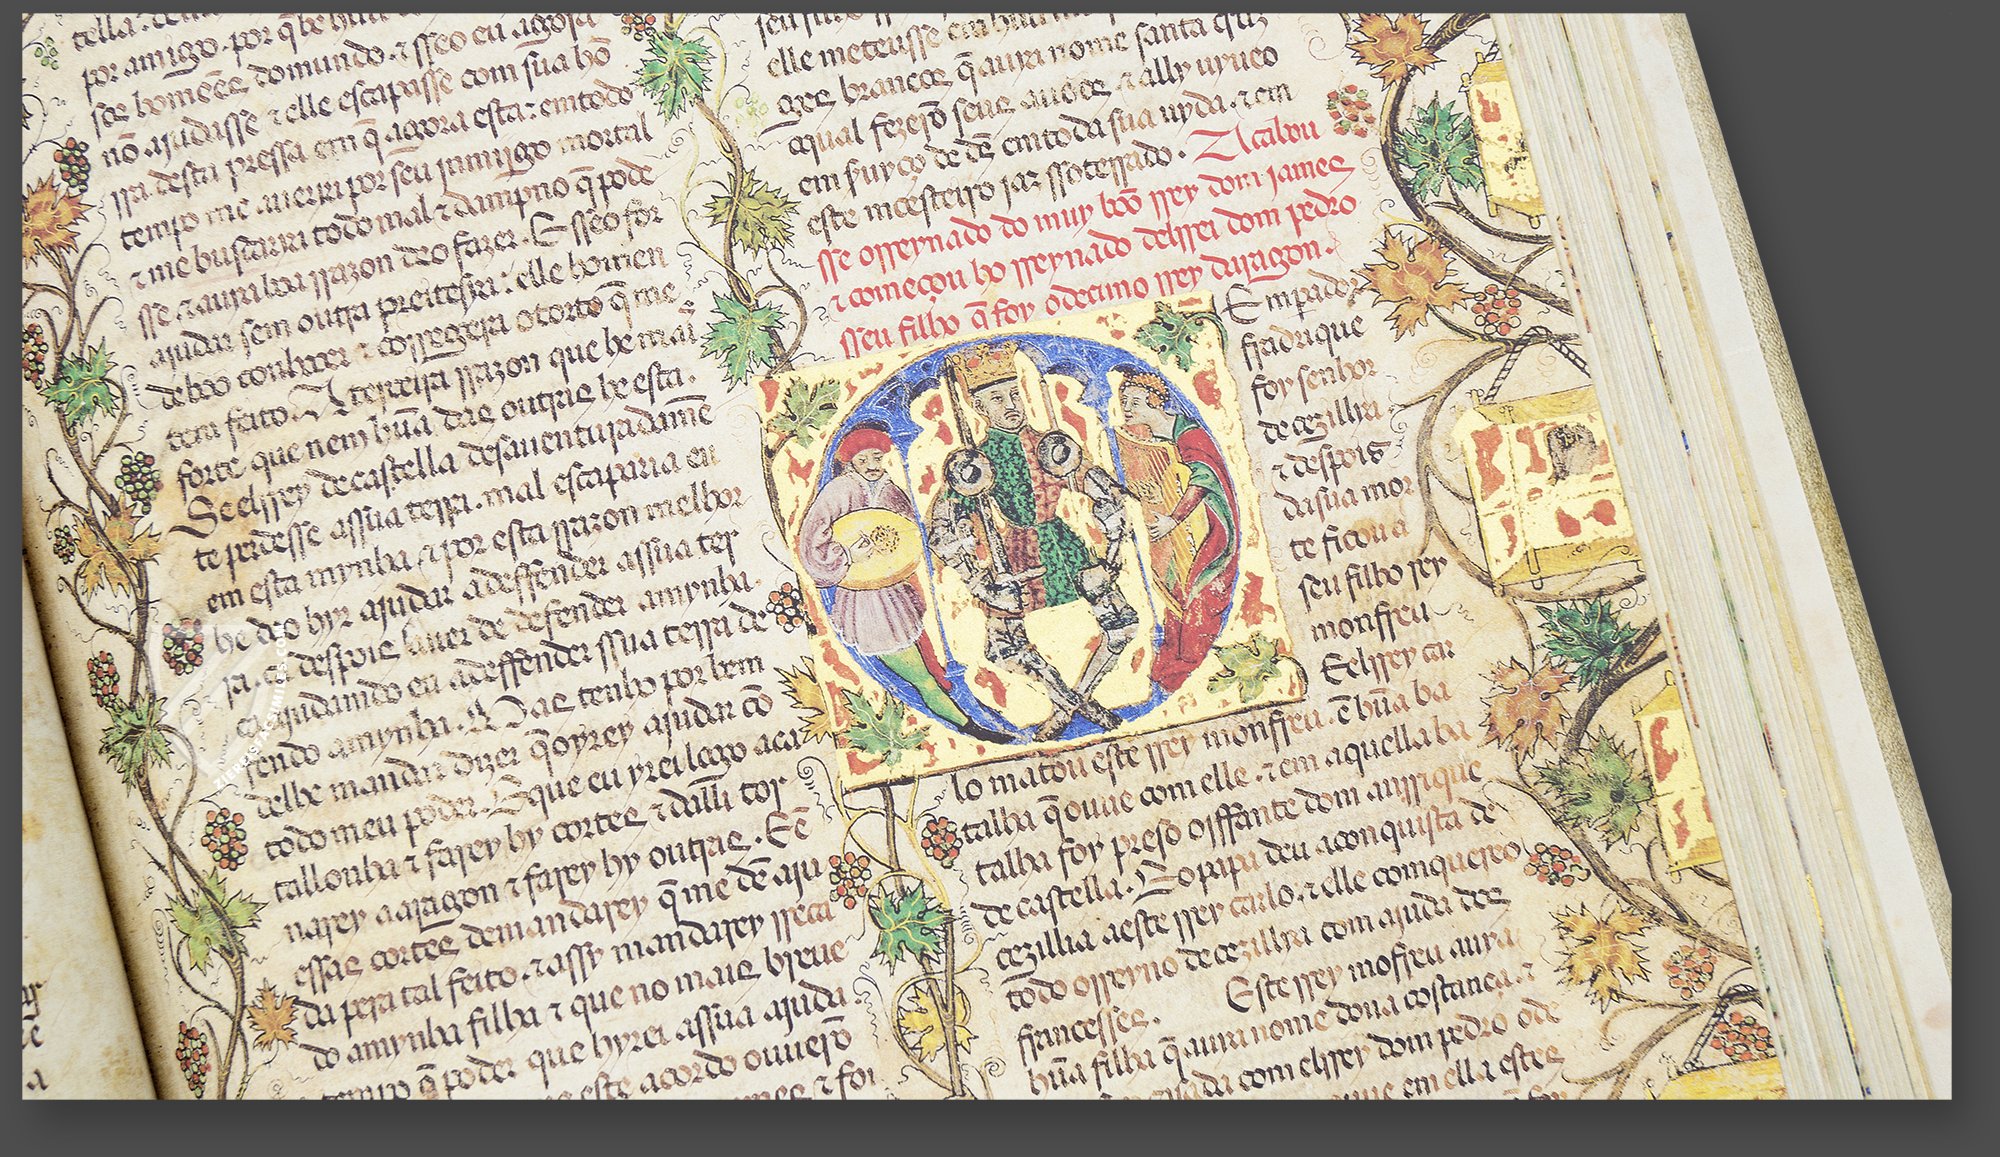 por amigo. por q̃ he huũ
sos homeẽs domundo. ⁊ sseo eu agora
nõ ajudasse ⁊ elle escapasse com sua hõ
rra desta pressa em q̃ agora esta: emtodo
tempo me aueria por seu jnmijgo mortal
⁊ me buscaria todo mal ⁊ dampno q̃ pode
sse ⁊ aueria boa rrazon deo fazer. E sseo for
ajudar sem outra preitesya: elle homen
deboo conhocer ⁊ corregera o torto q̃ me
tem feito. A terceira rrazon que he mais
forte que nem hũa das outras he esta.
Se elrrey de castella desauenturadamẽ
te perdesse assua terra. mal escaparia eu
em esta mynha ⁊ por esta rrazon melhor
he deo hyr ajudar a deffender assua ter
ra. ca despois auer de defender amynha.
ca ajudando eu a deffender ssua terra de
fendo amynha. Mas tenho por bem
delhe mandar dizer q̃ oyrey ajudar cõ
todo meu poder. E que eu yrei logo aca
tallonha ⁊ farey hy cortes ⁊ dalli tor
narey a aragon ⁊ farey hy outras. E ẽ
essas cortes demandarey q̃ me dẽ aju
da pera tal feito. ⁊ assy mandarey rreca
do amynha filha ⁊ que no mais breue
tempo q̃ poder que hyrei assua ajuda.
este acordo ouuerõ
elle meteusse em huũ
ges brancos q̃ auya nome santa cruz
qual fezerõ seus auoos ⁊ ally uyueo
em seruyço de dẽ em toda sua uyda. ⁊ em
este moesteiro jaz ssoterrado. Acabou
sse orreynado do muy boõ rrey dom james
⁊ começou ho rreynado delrrei dom pedro
sseu filho q̃ foy odecimo rrey daragon.
Emparador
fradrique
foy senhor
de cezillya
⁊ despois
da sua mor
te ficou a
seu filho rey
monffreu
E elrrey car
lo matou este rrey monffreu. ẽ hũa ba
talha q̃ ouue com elle. ⁊ em aquella ba
talha foy preso oiffante dom anrrique
de castella. E o papa deu a conquista de
cezillia aeste rrey carlo. ⁊ elle comquereo
todo orreyno de cezillya com ajuda dos
francesses. Este rrey mofreu auya
hũa filha q̃ auya nome dona costança. ⁊
casada com elrrey dom pedro
que em ella estes
ZIEREIS FACSIMILES.COM